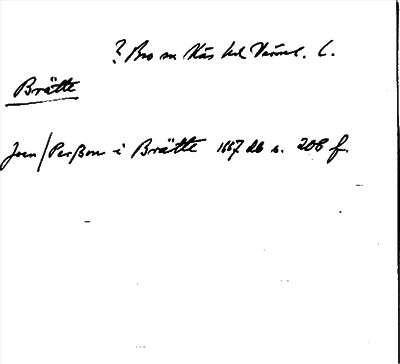 ? Bro sn Näs hd Värml. l.
Brätte
Joen/Perßon i Brätte 1667 db s. 208 f.